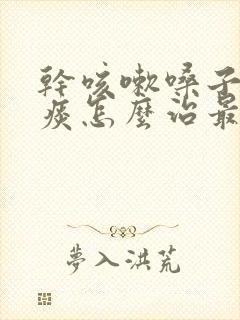 幹咳嗽嗓子
痰怎麼治最
夢入洪荒